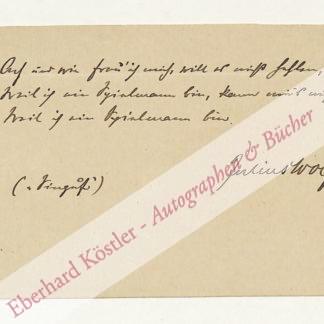 Ach und wie freu' ich mich, will es nicht fehlen,
Weil ich ein Spielmann bin, kann mir's
Weil ich ein Spielmann bin.
("Singuf")
Julius Wolff
Eberhard Köstler - Autographen & Bücher